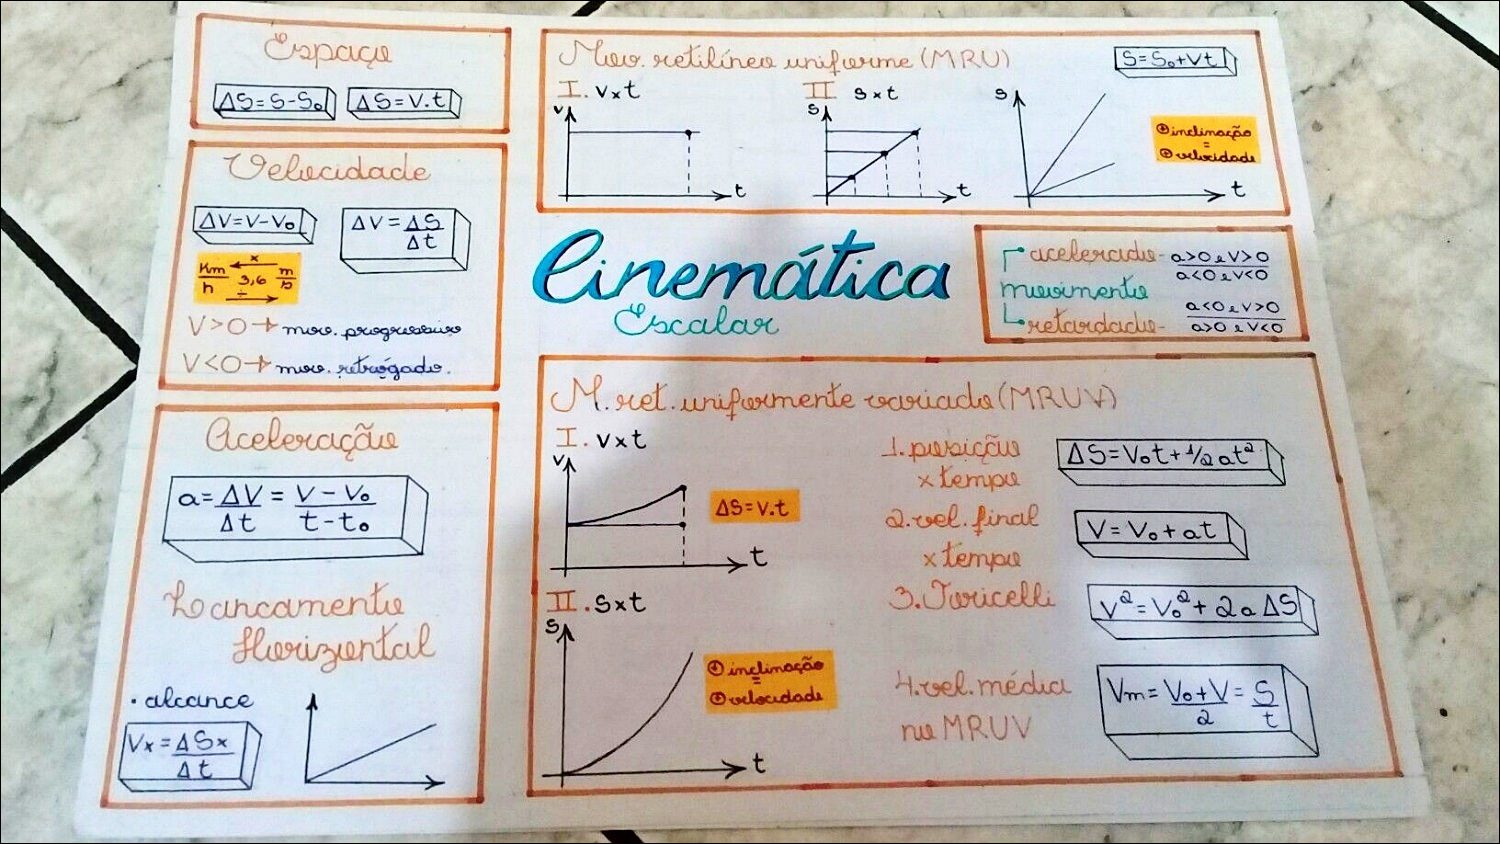 Espaço
ΔS=S-S₀
ΔS=V.t
Velocidade
ΔV=V-V₀
ΔV=ΔS/Δt
Km/h × 3,6 ÷ m/s
V>0→ mov. progressivo
V<0→ mov. retrógado.
Aceleração
a=ΔV/Δt = V-V₀/t-t₀
Lancamento
Horizontal
• alcance
Vx=ΔSx/Δt
Mov. retilíneo uniforme (MRU)
S=S₀+Vt
I. vxt
V
t
II sxt
S
t
S
t
⊕inclinação
=
⊕velocidade
Cinemática
Escalar
movimento
acelerado- a>0 e V>0
a<0 e V<0
retardado- a<0 e V>0
a>0 e V<0
M. ret. uniformente variado (MRUV)
I. vxt
V
t
ΔS=v.t
II. sxt
S
t
⊕inclinação
=
⊕velocidade
1. posição
x tempo
ΔS=V₀t+½at²
2. vel. final
x tempo
V=V₀+at
3. Toricelli
V²=V₀²+2aΔS
4. vel. média
no MRUV
Vm=V₀+V/2=S/t